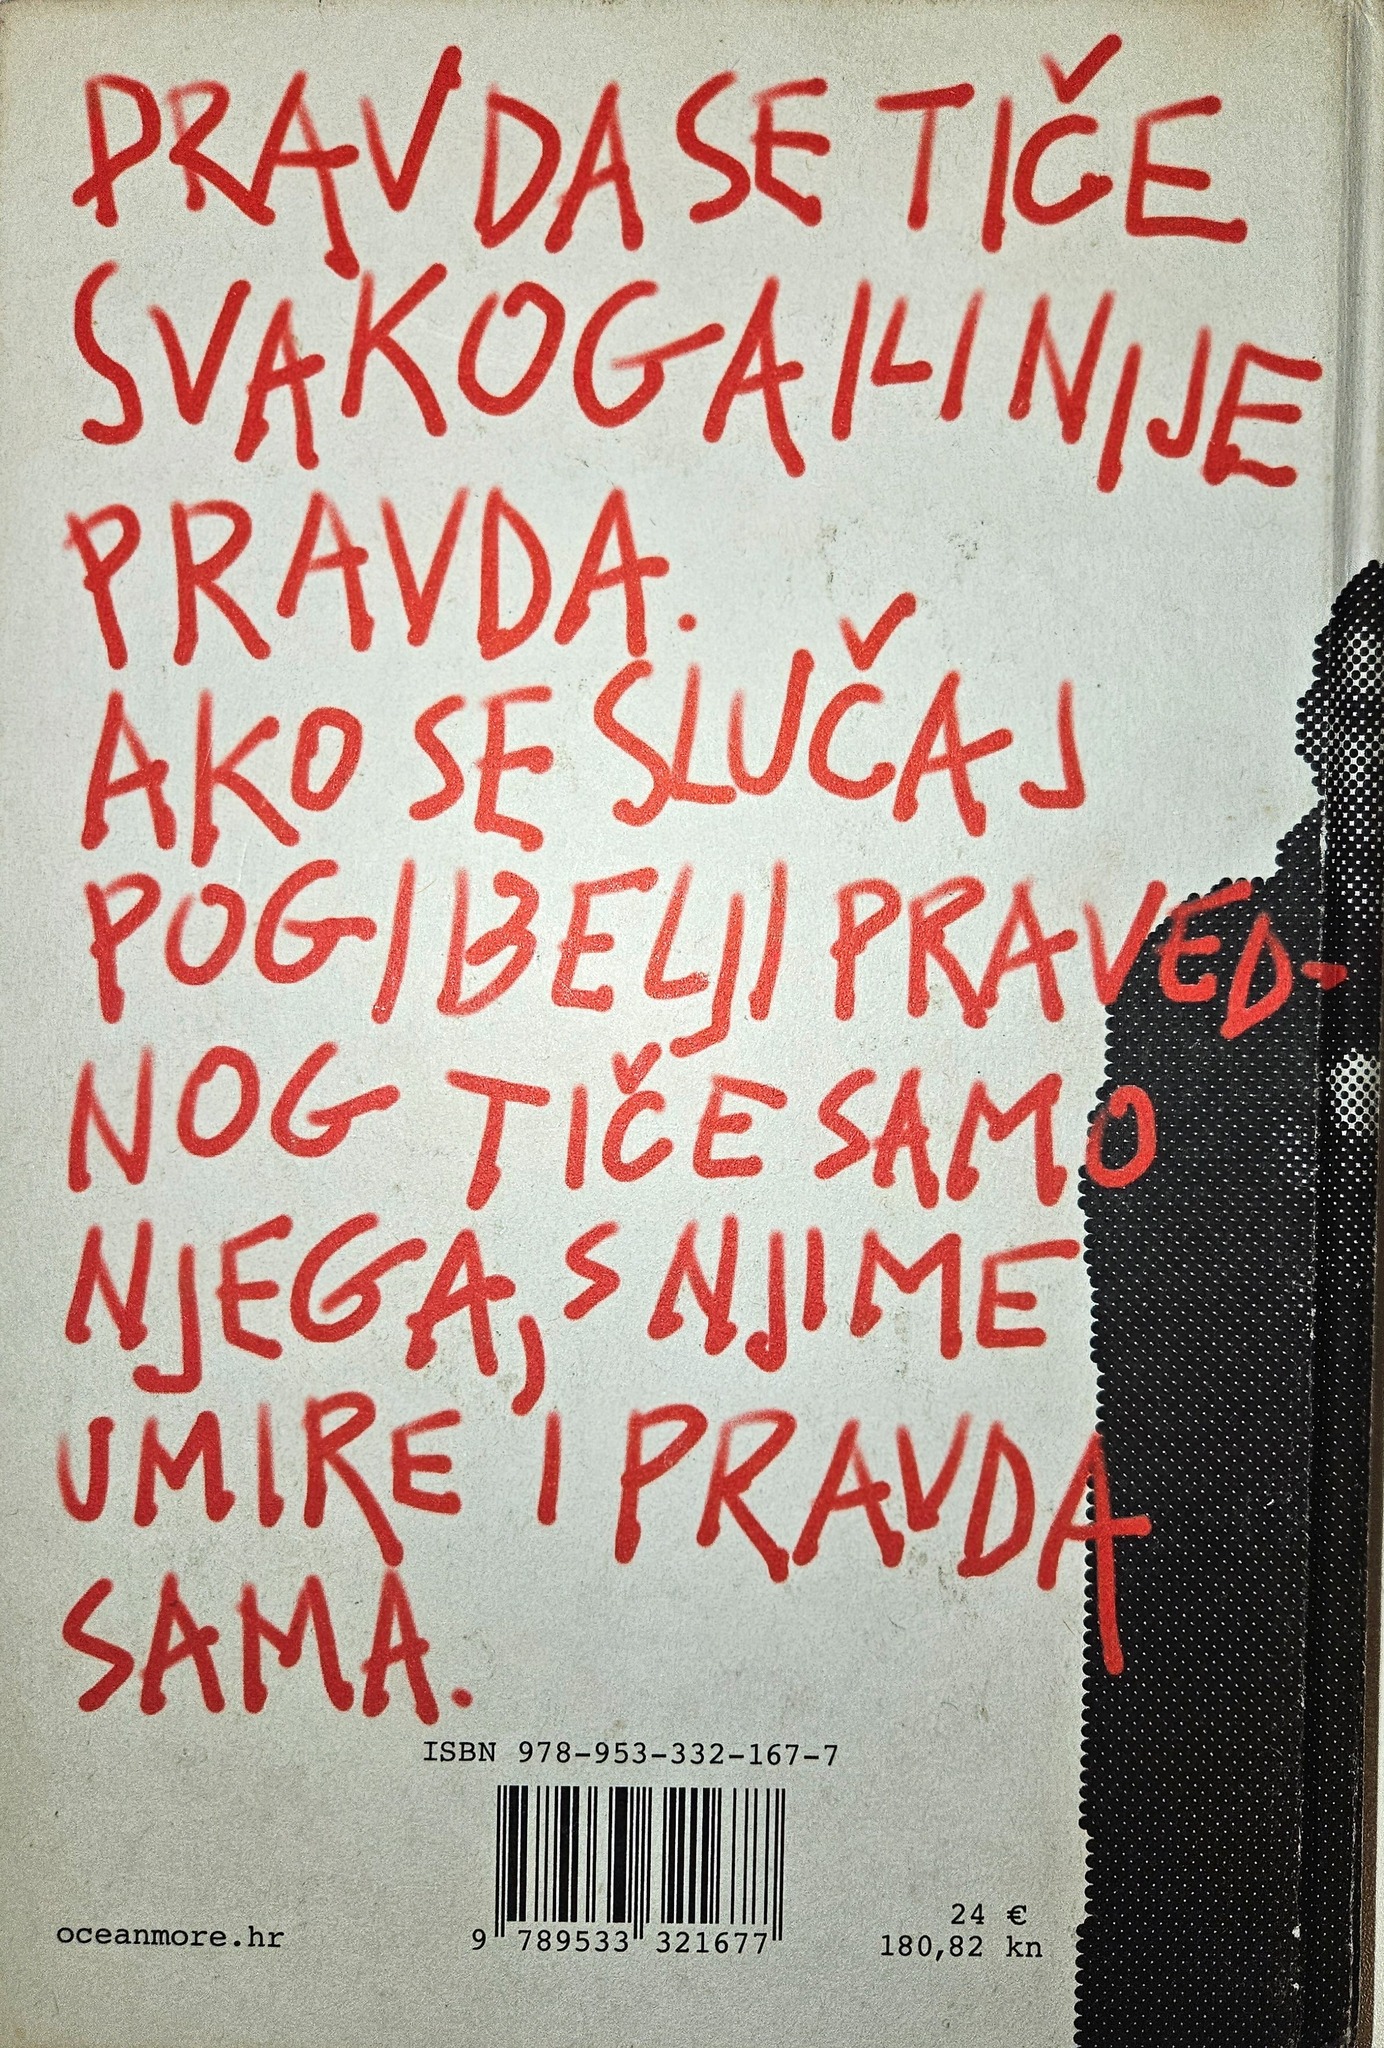 PRAVDA SE TIČE
SVAKOGA ILI NIJE
PRAVDA.
AKO SE SLUČAJ
POGIBELJI PRAVED-
NOG TIČE SAMO
NJEGA, S NJIME
UMIRE I PRAVDA
SAMA.
ISBN 978-953-332-167-7
9 789533 321677
oceanmore.hr
24 €
180,82 kn